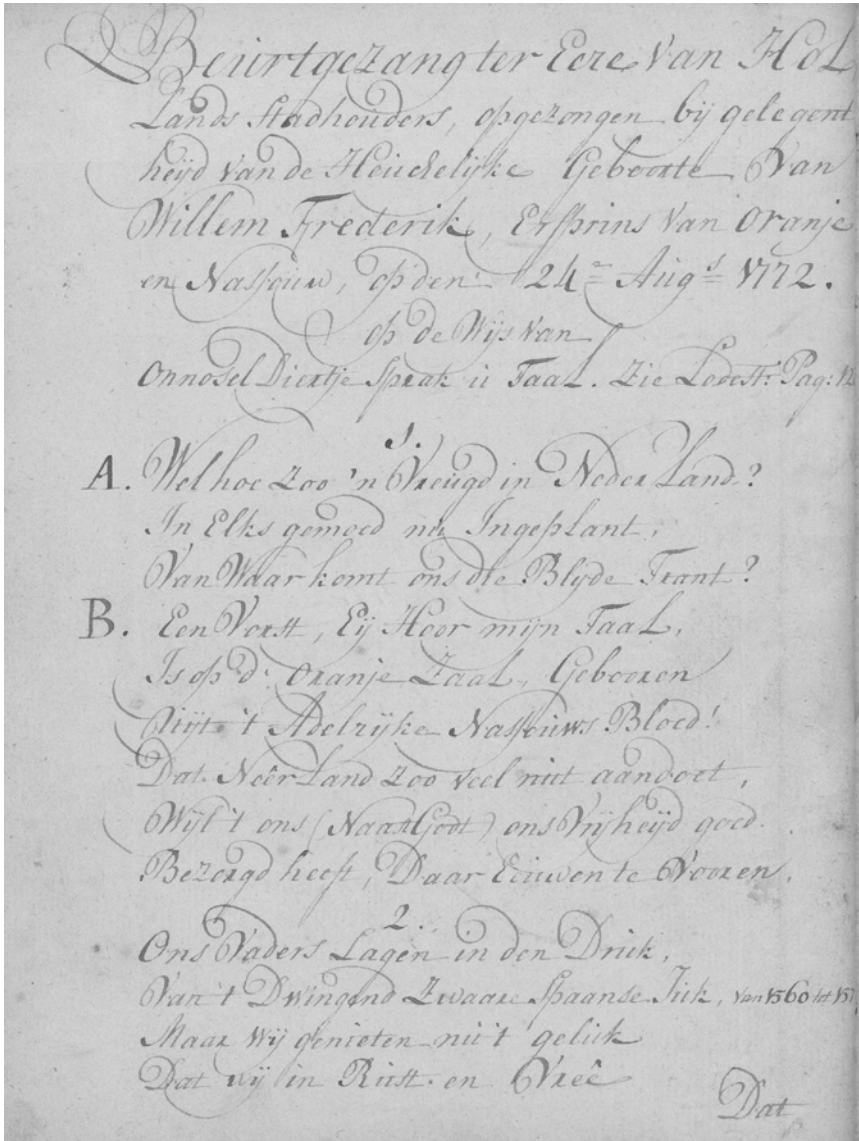 Beurtgezang ter Eere Van Hol
Lands Stadhouders, opgezongen bij gelegent
heijd van de Heuchelijke Geboorte Van
Willem Frederik, Erfprins Van Oranje
en Nassouw, op den 24e Augs 1772.
op de Wijs Van
Onnosel Diertje Sprak u Taal. Zie Lodest: Pag: 12
1.
A. Wel hoe Zoo 'n Vreugd in Nederland?
In Elks gemoed nu Ingeplant,
Van Waar komt ons die Blyde Trant?
B. Een Vorst, Eij Hoor mijn Taal,
Is op d' Oranje Zaal, Gebooren
Uijt 't Adelryke Nassouws Bloed!
Dat Neêrland Zoo veel nut aandoet,
Wijl 't ons (Naast Godt) ons Vrijheijd goed
Bezorgd heeft, Daar Eeuwen te Vooren.
2.
Ons Vaders Lagen in den Druk,
Van 't Dwingend Zwaare Spaanse Juk, van 1560 tot 157
Maar Wij genieten nu 't geluk
Dat wij in Rust en Vreê
Dat